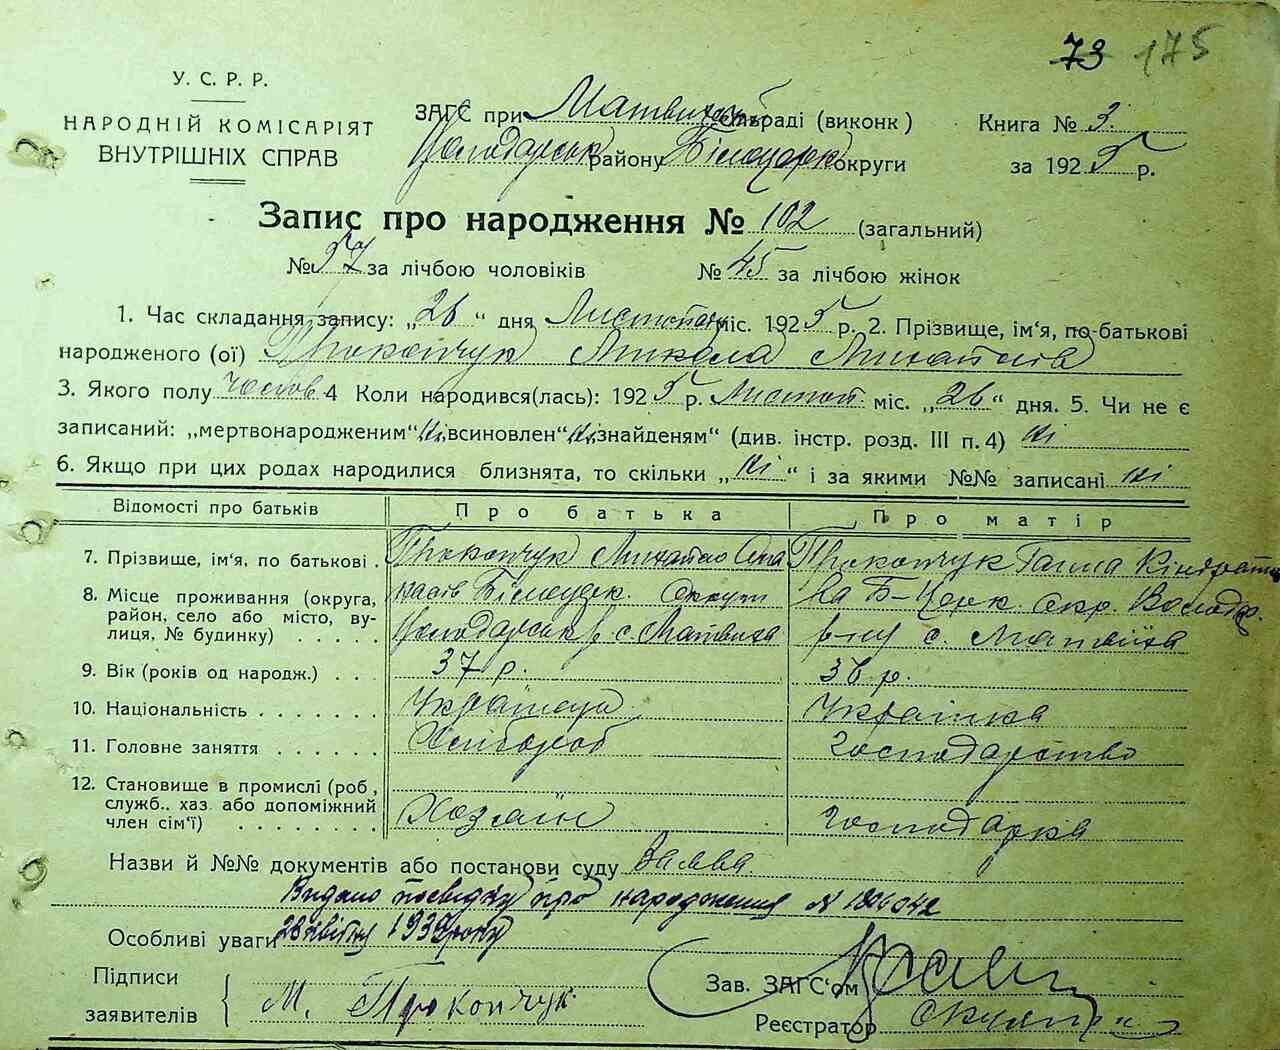 73 175
У. С. Р. Р.
НАРОДНІЙ КОМІСАРІЯТ
ВНУТРІШНІХ СПРАВ
ЗАГС при Матвих сільраді (виконк)
Володарськ району Білоцерк округи
Книга № 3.
за 1925 р.
Запис про народження № 102 (загальний)
№ 57 за лічбою чоловіків № 45 за лічбою жінок
1. Час складання запису: „26“ дня Листопаду міс. 1925 р. 2. Прізвище, ім'я, по-батькові
народженого (ої) Прокопчук Микола Михайлів
3. Якого полу Чолов 4 Коли народився(лась): 1925 р. Листоп. міс. „26“ дня. 5. Чи не є
записаний: „мертвонародженим“ Ні, „всиновлен“ Ні „знайденям“ (див. інстр. розд. III п. 4) Ні
6. Якщо при цих родах народилися близнята, то скільки „Ні“ і за якими №№ записані Ні
Відомості про батьків Про батька Про матір
7. Прізвище, ім'я, по батькові . Прокопчук Михайло Опа Прокопчук Ганна Кіндратів
8. Місце проживання (округа, район, село або місто, вулиця, № будинку) . . . . .
насів Білоцерк. Округи на Б-Церк. окр. Володар.
Володарськ р. с. Матвиха р-ну с. Матвіха
9. Вік (років од народж.) . . . 37 р. 36 р.
10. Національність . . . . . . . Українець Українка
11. Головне заняття . . . . . . Хлібороб Господарство
12. Становище в промислі (роб, служб.. хаз або допоміжний член сім'ї) . . . . . . . .
Хозяїн Господарка
Назви й №№ документів або постанови суду Заява
Видано посвідку про народження № 1806042
Особливі уваги 28 квітня 1939 року
Підписи
заявителів { М. Прокопчук.
Зав. ЗАГС'ом
Реєстратор